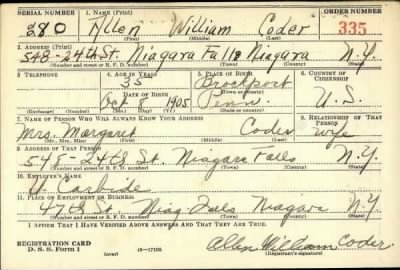 SERIAL NUMBER 1. NAME (Print) ORDER NUMBER
280 Allen William Coder 335
(First) (Middle) (Last)
2. ADDRESS (Print)
548-24th St. Niagara Falls Niagara N.Y.
(Number and street or R. F. D. number) (Town) (County) (State)
3. TELEPHONE 4. AGE IN YEARS 5. PLACE OF BIRTH 6. COUNTRY OF CITIZENSHIP
35 Brockport
DATE OF BIRTH (Town or county)
Oct 8 1905 Penn. U.S.
(Exchange) (Number) (Mo.) (Day) (Yr.) (State or country)
7. NAME OF PERSON WHO WILL ALWAYS KNOW YOUR ADDRESS 8. RELATIONSHIP OF THAT PERSON
Mrs. Margaret Coder wife
(Mr., Mrs., Miss) (First) (Middle) (Last)
9. ADDRESS OF THAT PERSON
548-24th St. Niagara Falls N.Y.
(Number and street or R. F. D. number) (Town) (County) (State)
10. EMPLOYER'S NAME
U. Carbide
11. PLACE OF EMPLOYMENT OR BUSINESS
47th St. Niag Falls Niagara N.Y.
(Number and street or R. F. D. number) (Town) (County) (State)
I AFFIRM THAT I HAVE VERIFIED ABOVE ANSWERS AND THAT THEY ARE TRUE.
REGISTRATION CARD
D. S. S. Form 1 (over) 16-17105 Allen William Coder.
(Registrant's signature)